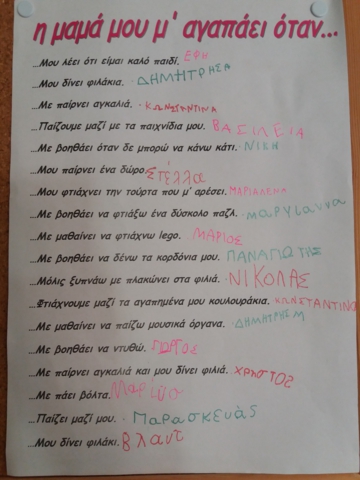 η μαμά μου μ' αγαπάει όταν...
...Μου λέει ότι είμαι καλό παιδί. ΕΦΗ
...Μου δίνει φιλάκια. ΔΗΜΗΤΡΗΣΑ
...Με παίρνει αγκαλιά. ΚΩΝΣΤΑΝΤΙΝΑ
...Παίζουμε μαζί με τα παιχνίδια μου. ΒΑΣΙΛΕΙΑ
...Με βοηθάει όταν δε μπορώ να κάνω κάτι. ΝΙΚΗ
...Μου παίρνει ένα δώρο. Στέλλα
...Μου φτιάχνει την τούρτα που μ' αρέσει. ΜΑΡΙΑΛΕΝΑ
...Με βοηθάει να φτιάξω ένα δύσκολο παζλ. μαργιαννα
...Με μαθαίνει να φτιάχνω lego. ΜΑΡΙΟΣ
...Με βοηθάει να δένω τα κορδόνια μου. ΠΑΝΑΓΙΩΤΗΣ
...Μόλις ξυπνάω με πλακώνει στα φιλιά. ΝΙΚΟΛΑΣ
...Φτιάχνουμε μαζί τα αγαπημένα μου κουλουράκια. ΚΩΝΣΤΑΝΤΙΝΟ
...Με μαθαίνει να παίζω μουσικά όργανα. ΔΗΜΗΤΡΗΣ Μ
...Με βοηθάει να ντυθώ. ΓΙΩΡΓΟΣ
...Με παίρνει αγκαλιά και μου δίνει φιλιά. ΧΡΗΣΤΟΣ
...Με πάει βόλτα.
...Παίζει μαζί μου. Παρασκευάς
...Μου δίνει φιλάκι. Βλαντ